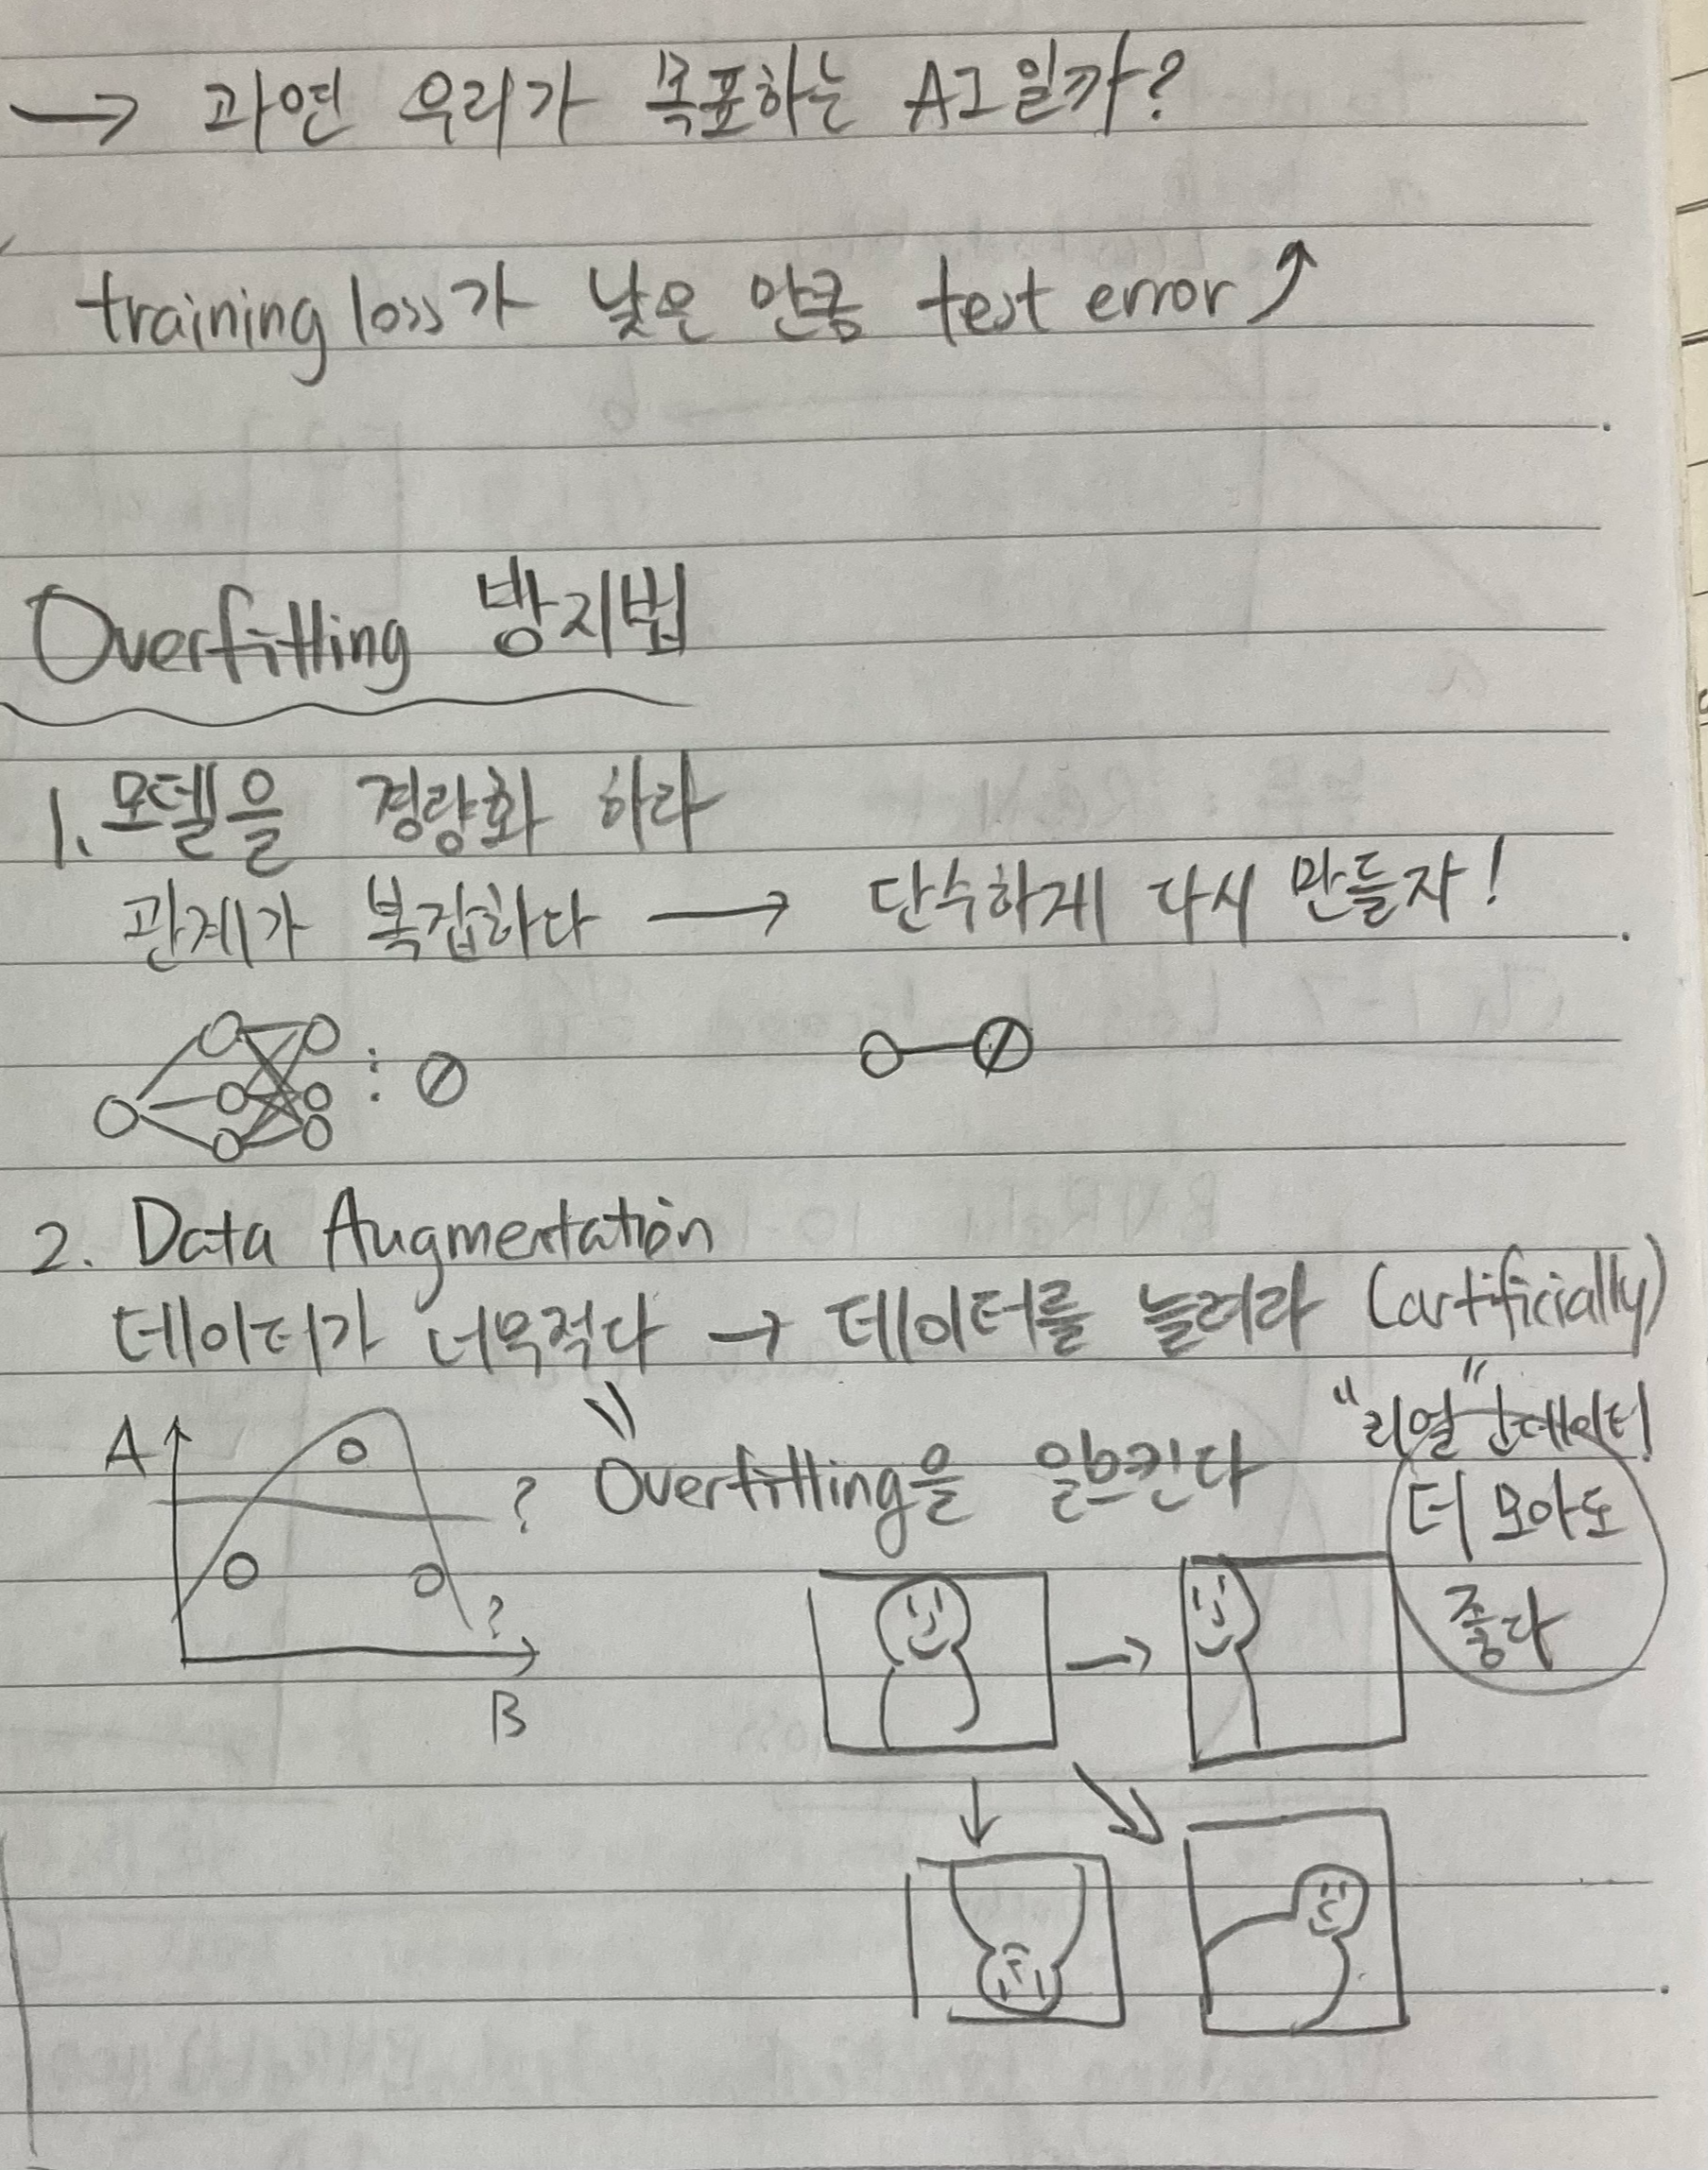 → 과연 우리가 목표하는 AI일까?
training loss가 낮은 만큼 test error ↑
Overfitting 방지법
1. 모델을 경량화 하라
관계가 복잡하다 → 단순하게 다시 만들자!
2. Data Augmentation
데이터가 너무적다 → 데이터를 늘려라 (artificially)
"리얼" 데이터
더 모아도
좋다
Overfitting을 일으킨다
A
?
?
B